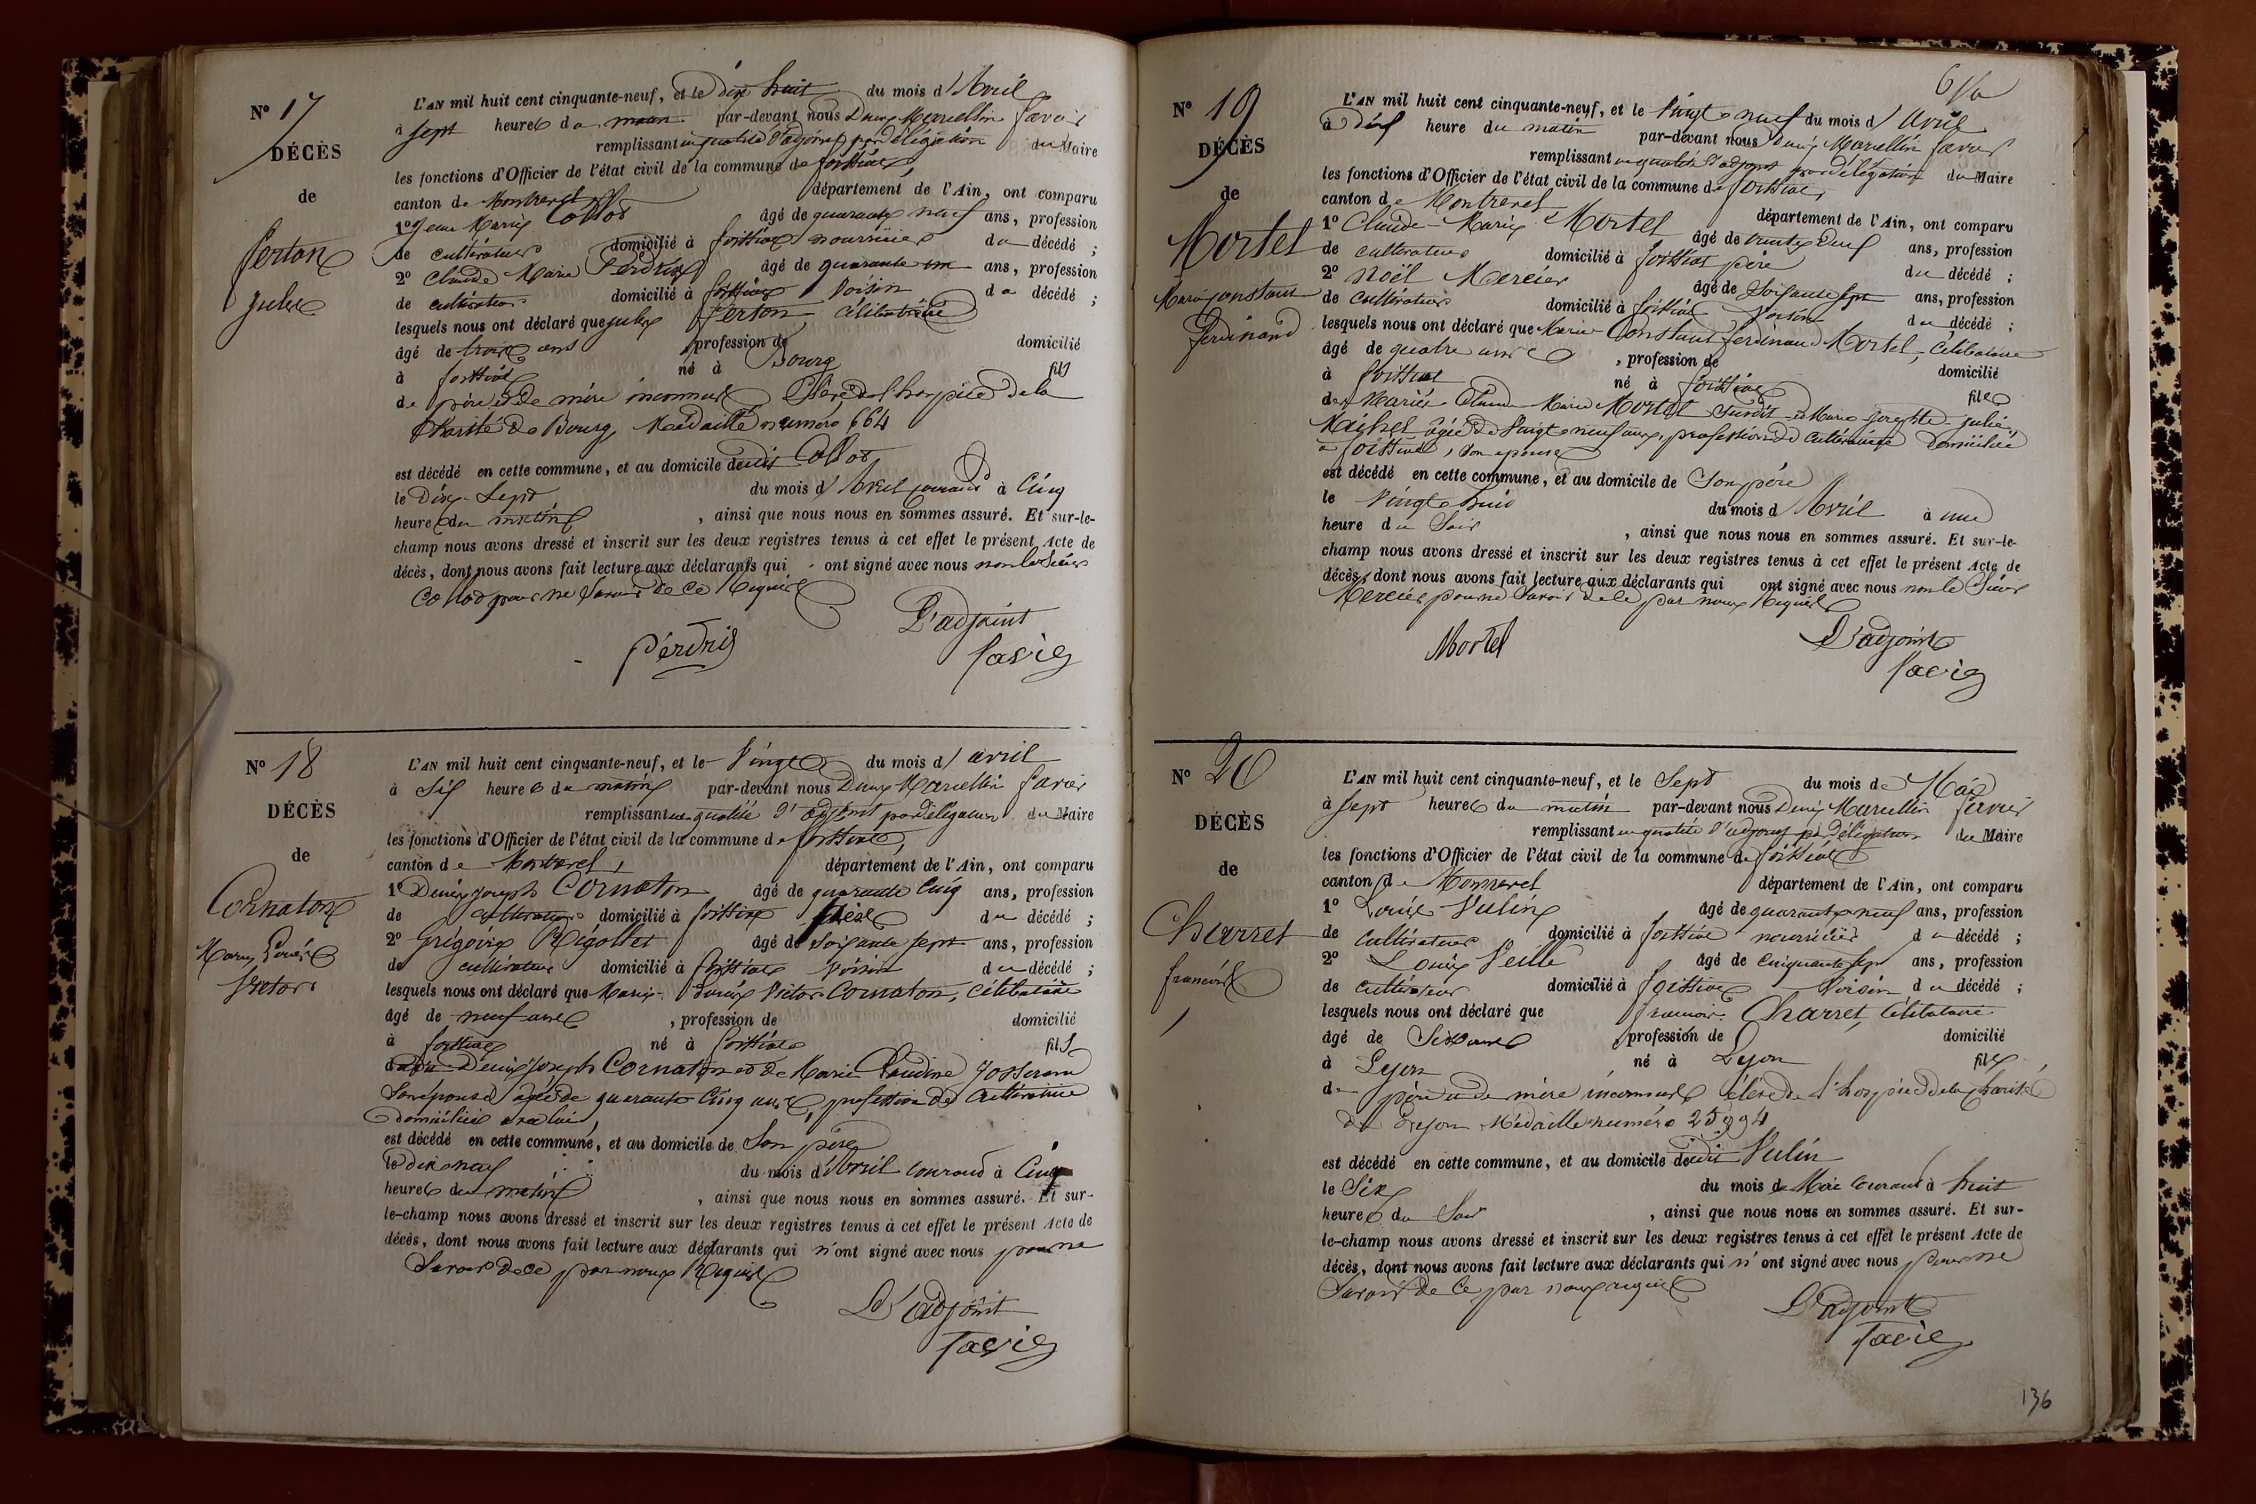 N° 17
DÉCÈS
de
Ferton
Jules
L'AN mil huit cent cinquante-neuf, et le dix huit du mois d'Avril
à sept heures du matin par-devant nous Denis Marcellin favier
remplissant en qualité d'adjoint par délégation du Maire
les fonctions d'Officier de l'état civil de la commune de foissiat,
canton de Montrevel département de l'Ain, ont comparu
1° Jean Marie Collod âgé de quarante neuf ans, profession
de cultivateur domicilié à foissiat nourricier du décédé ;
2° Claude Marie Perdrix âgé de quarante un ans, profession
de cultivateur domicilié à foissiat voisin du décédé ;
lesquels nous ont déclaré que Jules ferton célibataire
âgé de trois ans profession de domicilié
à foissiat né à Bourg fils
de père et de mère inconnus Elève de l'hospice de la
Charité de Bourg Médaille numéro 664
est décédé en cette commune, et au domicile dudit Collod
le Dix-Sept du mois d'Avril courant à Cinq
heures du matin , ainsi que nous nous en sommes assuré. Et sur-le-
champ nous avons dressé et inscrit sur les deux registres tenus à cet effet le présent Acte de
décès, dont nous avons fait lecture aux déclarants qui ont signé avec nous non le Sieur
Collod pour ne savoir de ce Requis
L'adjoint
Perdrix favier
N° 18
DÉCÈS
de
Cornaton
Marie Denis
Victor
L'AN mil huit cent cinquante-neuf, et le Vingt du mois d'avril
à Six heures du matin par-devant nous Denis Marcellin favier
remplissant en qualité d'adjoint par délégation du Maire
les fonctions d'Officier de l'état civil de la commune de foissiat,
canton de Montrevel, département de l'Ain, ont comparu
1° Denis Joseph Cornaton âgé de quarante Cinq ans, profession
de cultivateur domicilié à foissiat père du décédé ;
2° Grégoire Rigollet âgé de Soixante sept ans, profession
de cultivateur domicilié à foissiat voisin du décédé ;
lesquels nous ont déclaré que Marie Denis Victor Cornaton, célibataire
âgé de neuf ans , profession de domicilié
à foissiat né à foissiat fils
dudit Denis Joseph Cornaton et de Marie Claudine Josserand
Son épouse âgée de quarante Cinq ans, profession de Cultivatrice
domiciliée avec lui
est décédé en cette commune, et au domicile de Son père
le dix neuf du mois d'Avril courant à Cinq
heures du matin , ainsi que nous nous en sommes assuré. Et sur-
le-champ nous avons dressé et inscrit sur les deux registres tenus à cet effet le présent Acte de
décès, dont nous avons fait lecture aux déclarants qui n'ont signé avec nous pour ne
Savoir de ce par nous Requis
L'adjoint
favier
N° 19
DÉCÈS
de
Mortel
Marie Constant
Ferdinand
L'AN mil huit cent cinquante-neuf, et le Vingt neuf du mois d'Avril
à dix heure du matin par-devant nous Denis Marcellin favier
remplissant en qualité d'adjoint par délégation du Maire
les fonctions d'Officier de l'état civil de la commune de foissiat,
canton de Montrevel département de l'Ain, ont comparu
1° Claude-Marie Mortel âgé de trente Deux ans, profession
de cultivateur domicilié à foissiat père du décédé ;
2° Noël Mercier âgé de Soixante sept ans, profession
de cultivateur domicilié à foissiat Voisin du décédé ;
lesquels nous ont déclaré que Marie Constant ferdinand Mortel, Célibataire
âgé de quatre ans , profession de domicilié
à foissiat né à foissiat fils
des Mariés Claude Marie Mortel Susdit et Marie Josephte Julie
âgée de Vingt neuf ans, profession de Cultivatrice Domiciliée
à foissiat, Son épouse
est décédé en cette commune, et au domicile de Son père
le Vingt huit du mois d'Avril à une
heure du Soir , ainsi que nous nous en sommes assuré. Et sur-le-
champ nous avons dressé et inscrit sur les deux registres tenus à cet effet le présent Acte de
décès, dont nous avons fait lecture aux déclarants qui ont signé avec nous non le Sieur
Mercier pour ne Savoir de ce par nous Requis
Mortel L'adjoint
favier
N° 20
DÉCÈS
de
Charret
françois
L'AN mil huit cent cinquante-neuf, et le Sept du mois de Mai
à Sept heures du matin par-devant nous Denis Marcellin favier
remplissant en qualité d'adjoint par délégation du Maire
les fonctions d'Officier de l'état civil de la commune de foissiat
canton de Montrevel département de l'Ain, ont comparu
1° Louis Vulin âgé de quarante neuf ans, profession
de cultivateur domicilié à foissiat nourricier du décédé ;
2° Louis Veille âgé de Cinquante sept ans, profession
de cultivateur domicilié à foissiat Voisin du décédé ;
lesquels nous ont déclaré que françois Charret, Célibataire
âgé de Six ans profession de domicilié
à Lyon né à Lyon fils
de père et de mère inconnus élève de l'hospice de la Charité
de Lyon Médaille numéro
est décédé en cette commune, et au domicile dudit Vulin
le Six du mois de Mai courant à huit
heures du Soir , ainsi que nous nous en sommes assuré. Et sur-
le-champ nous avons dressé et inscrit sur les deux registres tenus à cet effet le présent Acte de
décès, dont nous avons fait lecture aux déclarants qui n'ont signé avec nous pour ne
Savoir de ce par nous requis
L'adjoint
favier
136